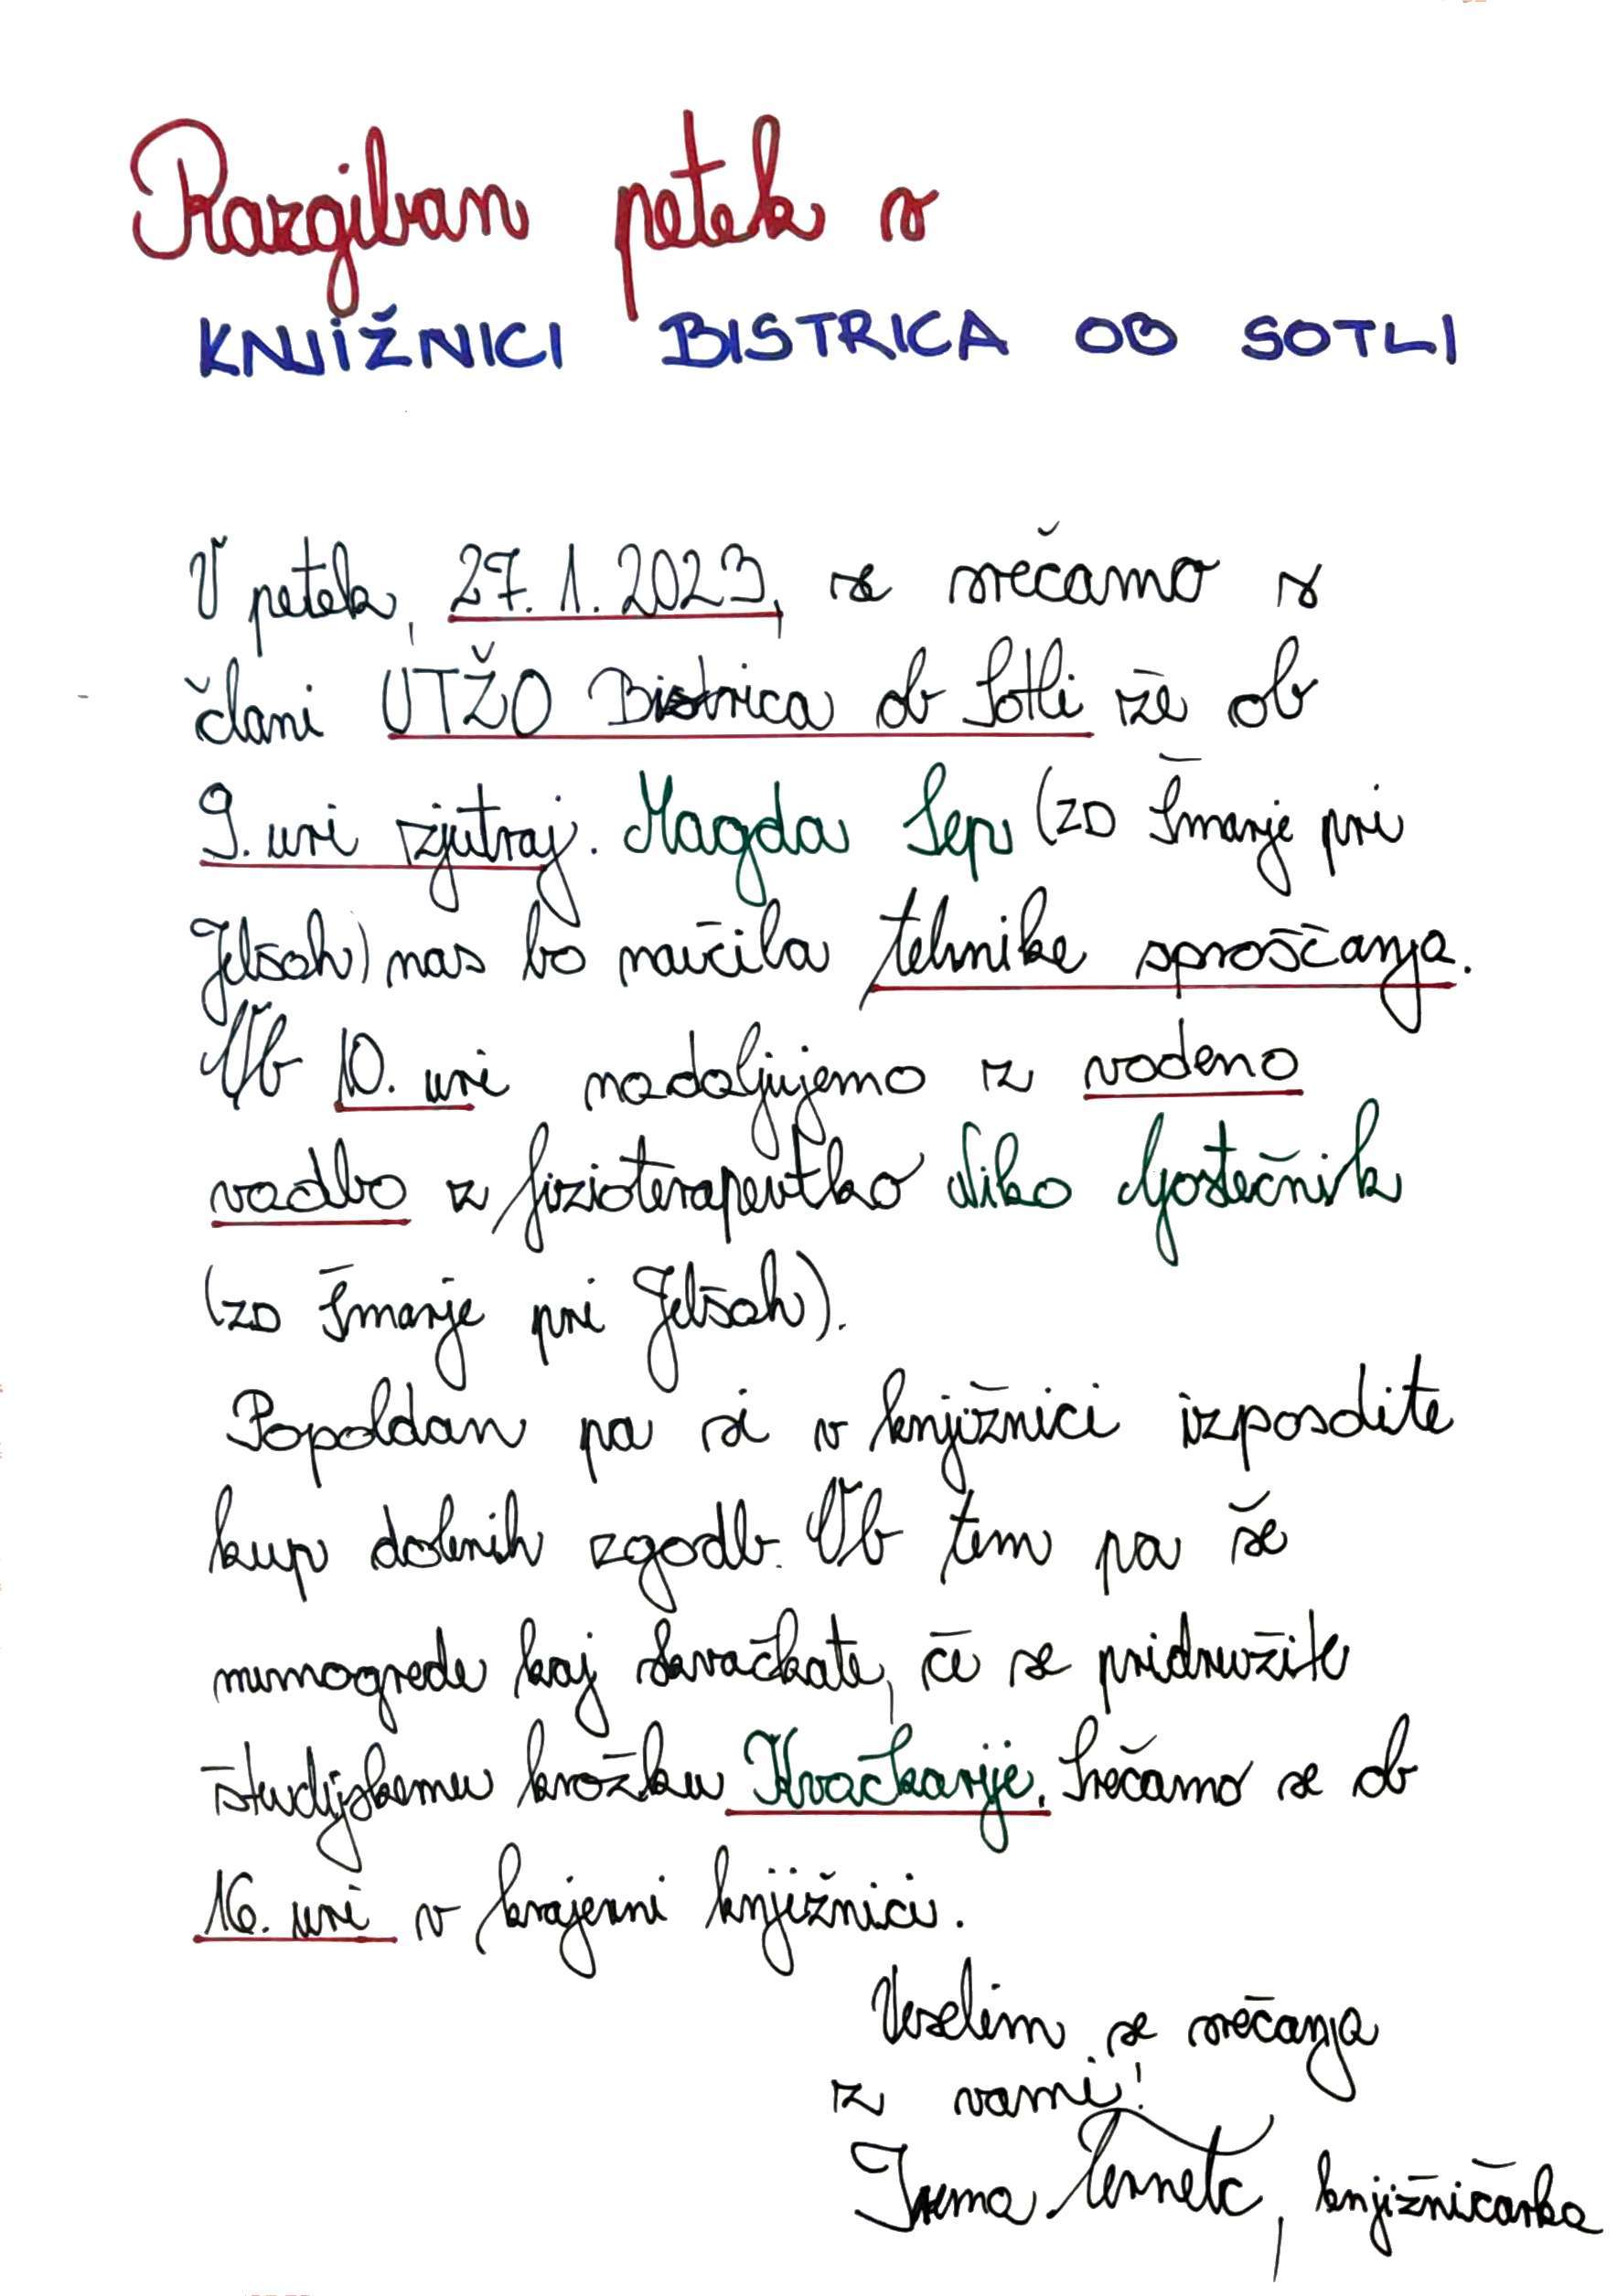 Razgiban petek v
KNJIŽNICI BISTRICA OB SOTLI
V petek, 27. 1. 2023, se srečamo s
člani UTŽO Bistrica ob Sotli že ob
9. uri zjutraj. Magda Sep (ZD Šmarje pri
Jelšah) nas bo naučila tehnike sproščanja.
Ob 10. uri nadaljujemo z vodeno
vadbo z fizioterapevtko Niko Gostečnik
(ZD Šmarje pri Jelšah).
Popoldan pa si v knjižnici izposdite
kup dobrih zgodb. Ob tem pa še
mimogrede kaj skvačkate, če se pridružite
študijskemu krožku Kvačkarije. Srečamo se ob
16. uri v krajevni knjižnici.
Veselim se srečanja
z vami!
Irema, knjižničarka